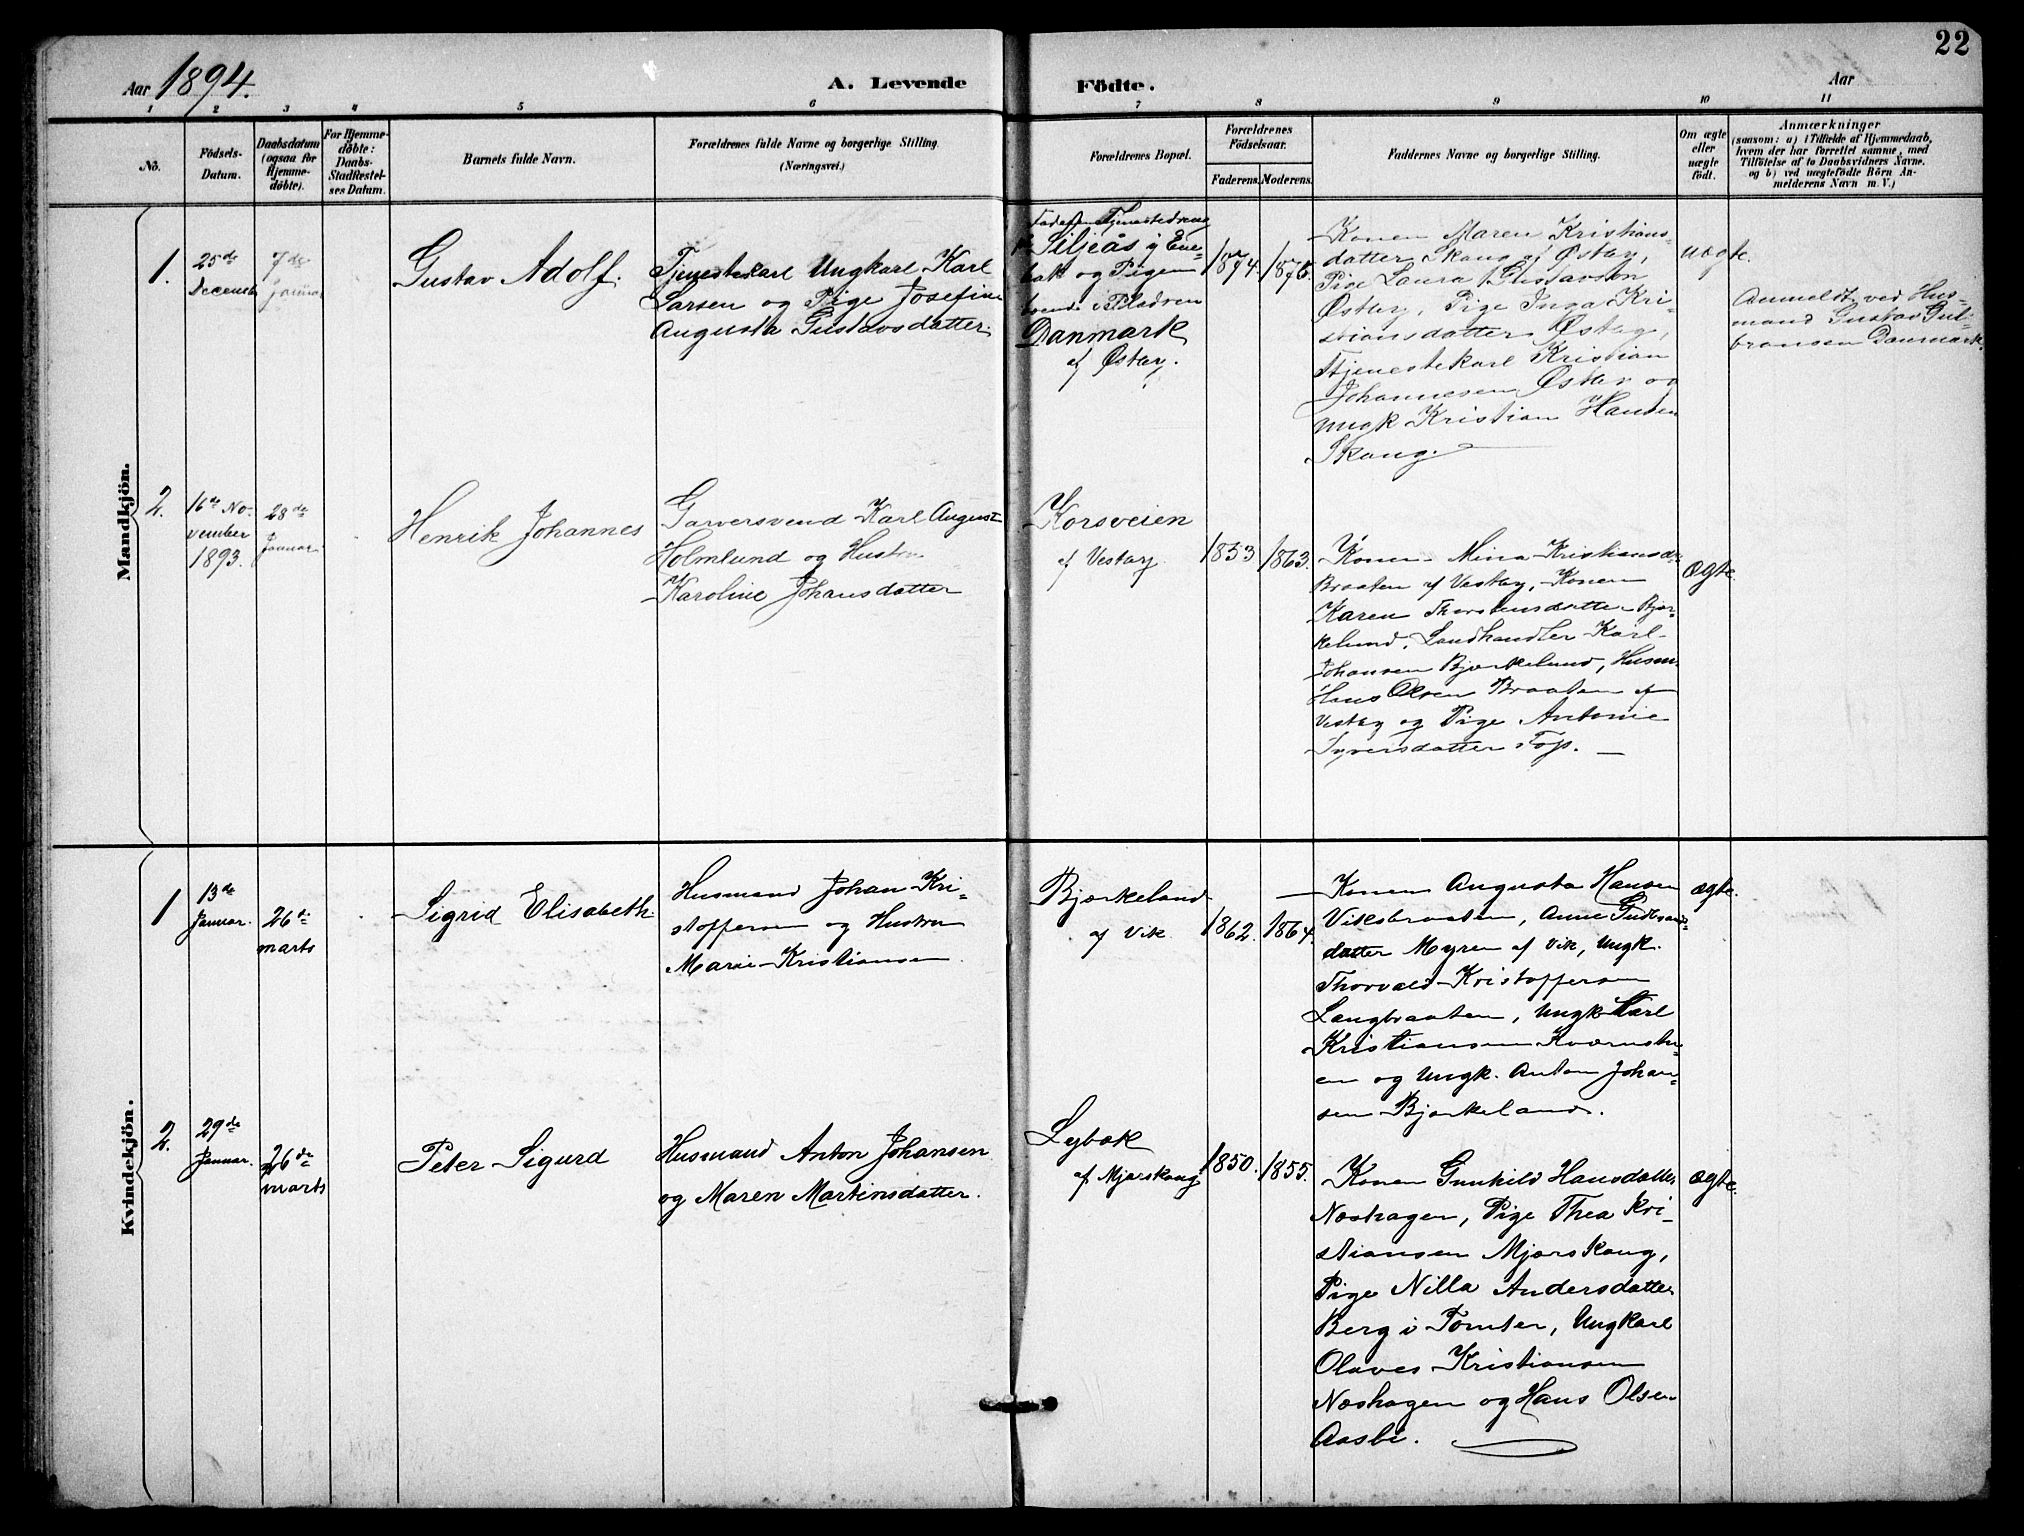 22
Aar 1894.
A. Levende
Födte.
Aar
1 2 3 4 5 6 7 8 9 10 11
No.
Födsels-
Datum.
Daabsdatum
(ogsaa for
Hjemme-
döbte).
For Hjemme-
döbte:
Daabs-
Stadfæstel-
ses Datum.
Barnets fulde Navn.
Forældrenes fulde Navne og borgerlige Stilling.
(Næringsvei.)
Forældrenes Bopæl.
Forældrenes
Födselsaar.
Faderens.
Moderens.
Faddernes Navne og borgerlige Stilling.
Om ægte
eller
uægte
født.
Anmærkninger
(saasom: a) i Tilfælde af Hjemmedaab,
hvem der har forrettet samme, med
Tilföielse af to Daabsvidners Navne.
og b) ved uægtefödte Börn An-
melderens Navn m. V.)
Mandkjön.
1.
25de
Decemb
7de
Januar
Gustav Adolf.
Tjenestekarl Ungkarl Karl
Larsen og Pige Josefine
Augusta Gustavsdatter.
Faderen Tjenestedreng
Siljeås i Ene-
bak og Pigen
boende i Pladsen
Danmark
af Østby.
1874.
1876.
Konen Maren Kristians-
datter Skaug af Østby,
Pige Laura Gustavsen
Østby, Pige Inga Kri-
stiansdatter Østby,
Tjenestekarl Kristian
Johannesen Østby og
Ungk Kristian Hansen
Skaug.
uægte.
Anmeldt ved Hus-
mand Gustav Gul-
bransen Danmark.
2.
16de No-
vember
1893.
28de
Januar
Henrik Johannes
Garversvend Karl August
Holmlund og Hustru
Karoline Johansdatter
Korsveien
af Vestby
1853
1863.
Konen Mina Kristiansd.
Braaten af Vestby, Konen
Karen Thorstensdatter Bjør-
kelund, Landhandler Karl
Johansen Bjørkelund, Husm.
Hans Olsen Braaten af
Vestby og Pige Antonie
Syversdatter Fos.
ægte.
Kvindekjön.
1
13de
Januar.
26de
marts
Sigrid Elisabeth.
Husmand Johan Kri-
stoffersen og Hustru
Marie Kristiansen.
Bjørkeland
af Vik
1862.
1864.
Konen Augusta Hansen
Viksbraaten, Anne Gudbrands-
datter Myren af Vik, Ungk.
Thorvald Kristoffersen
Langbraaten, Ungk Karl
Kristiansen Kværnstu-
en og Ungk. Anton Johan-
sen Bjørkeland.
ægte.
2.
29de
Januar.
26de
marts
Peter Sigurd
Husmand Anton Johansen
og Maren Martinsdatter.
Lybæk
af Mjærskaug
1850.
1855.
Konen Gunhild Hansdatter
Næshagen, Pige Thea Kri-
stiansen Mjærskaug,
Pige Nilla Andersdatter
Berg i Tomter, Ungkarl
Olaves Kristiansen
Næshagen og Hans Olsen
Aasbi.
ægte.